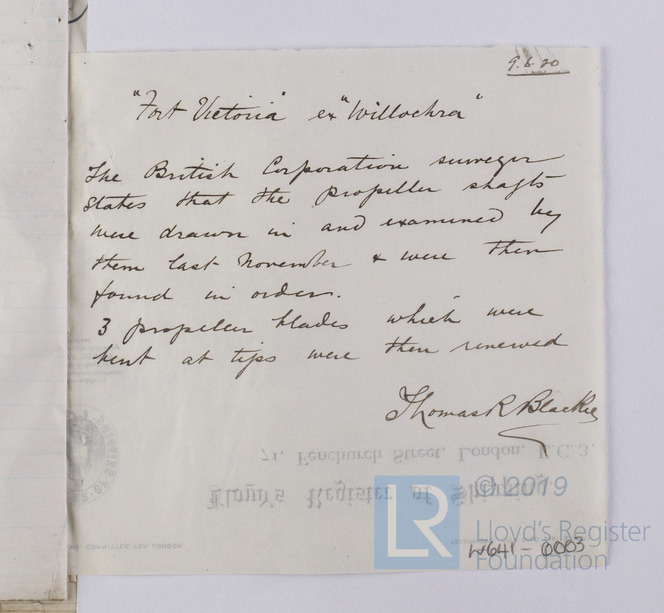 9.6.20
"Fort Victoria" ex "Willochra"
The British Corporation surveyor
states that the propeller shafts
were drawn in and examined by
them last November & were then
found in order.
3 propeller blades which were
bent at tips were then renewed
Thomas R Blackie
71, Fenchurch Street, London, E.C.3.
Lloyd's Register of Shipping
© 2019
LR
Lloyd's Register
Foundation
W641 - 0003
COMMITTEE, LEN, LONDON